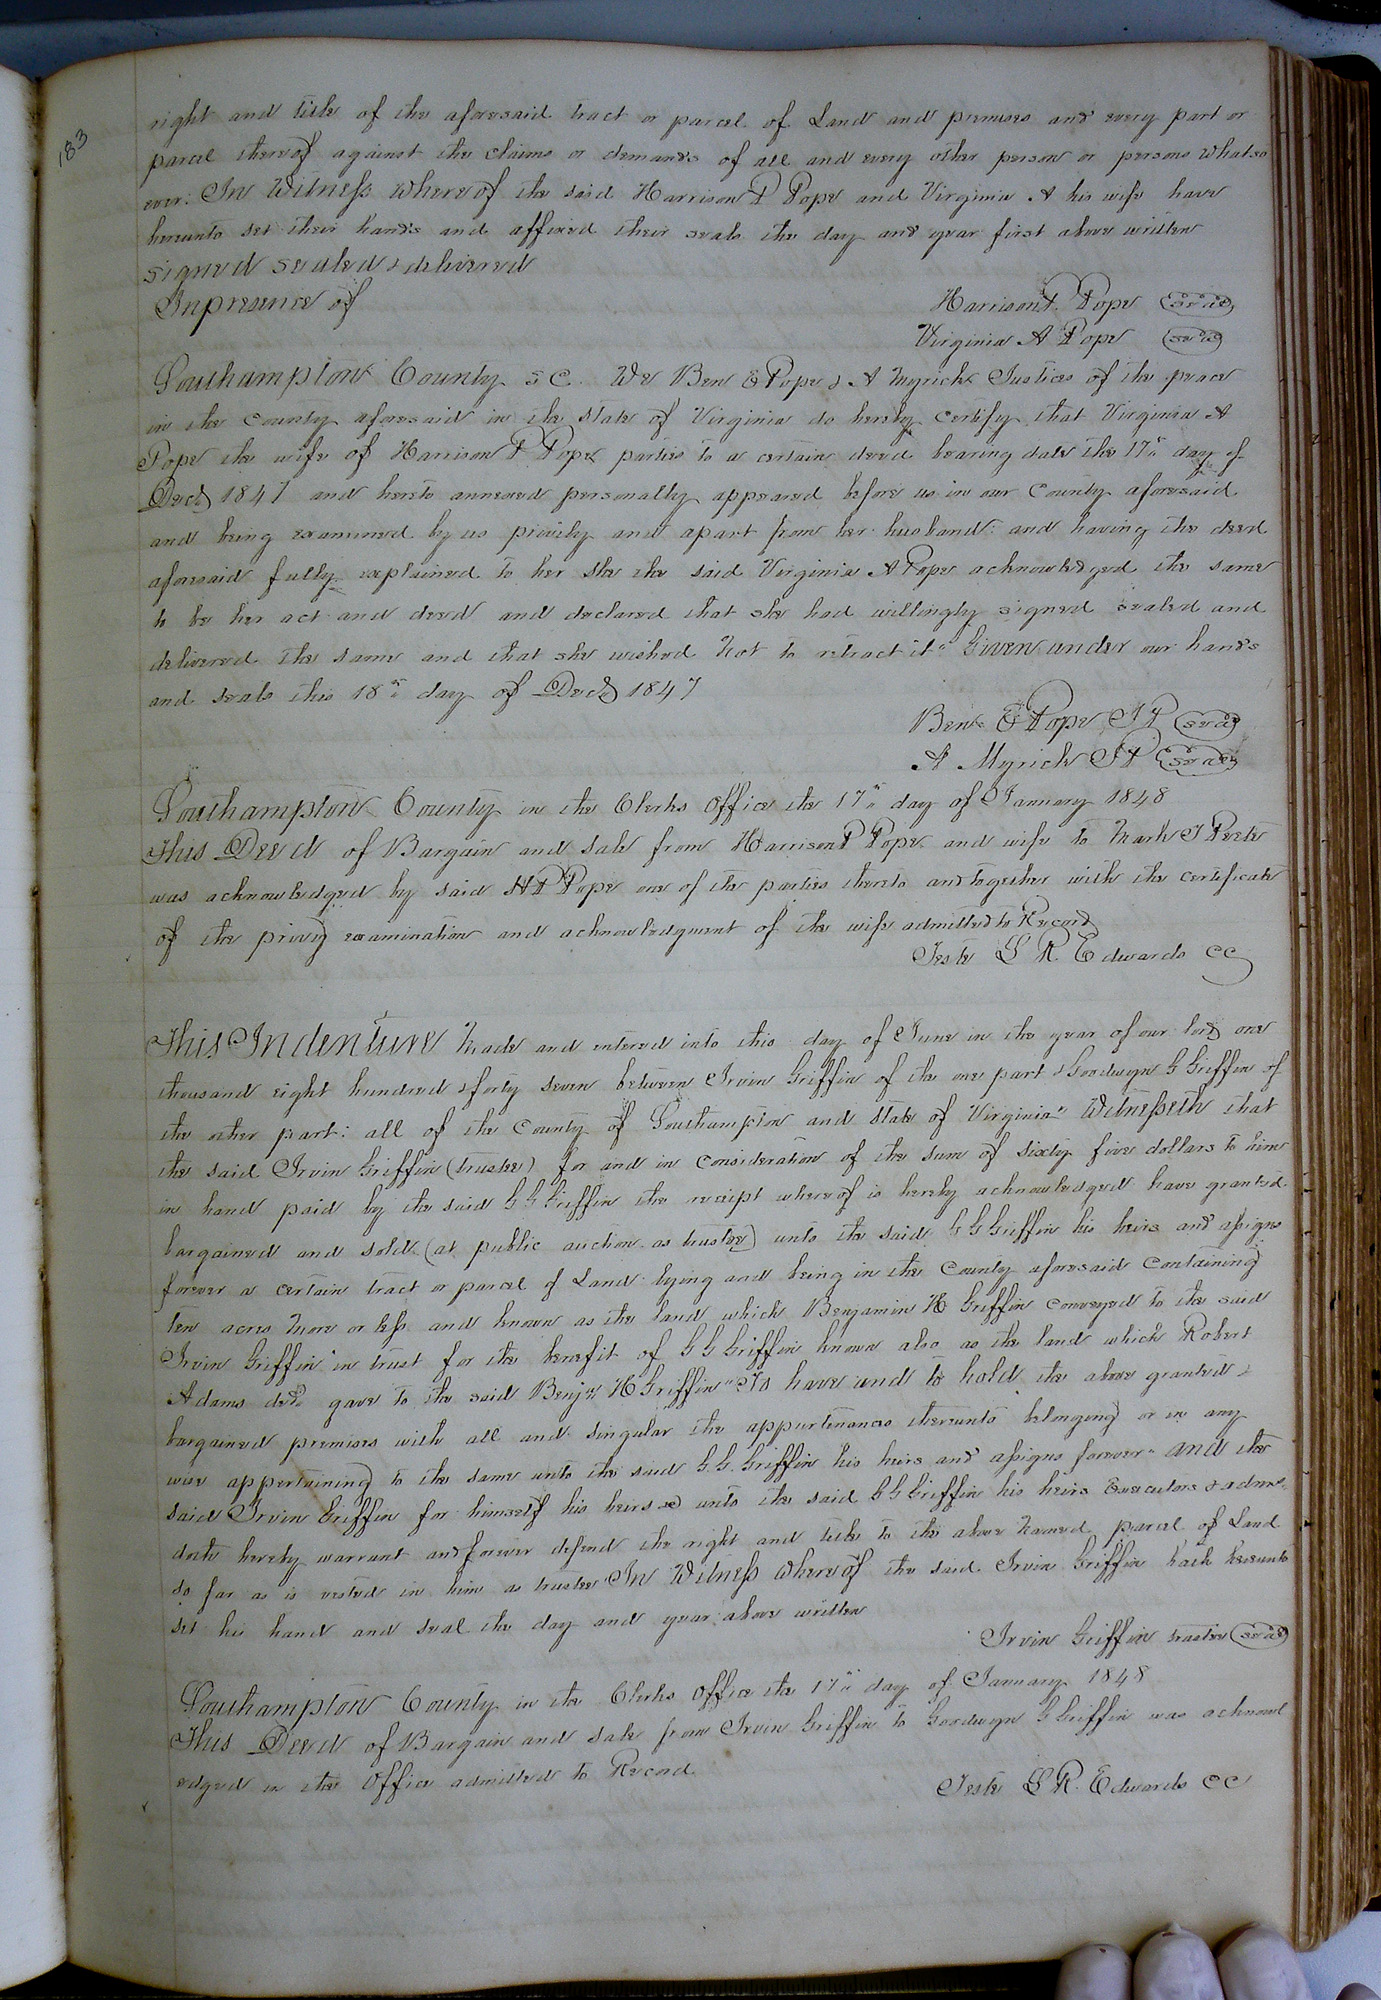 183
right and title of the aforesaid tract or parcel of Land and premises and every part or
parcel thereof against the claims or demands of all and every other person or persons whatso
ever: In Witness whereof the said Harrison P Pope and Virginia A his wife have
hereunto set their hands and affixed their seals the day and year first above written
signed sealed & delivered
In presence of
Harrison P. Pope seal
Virginia A Pope seal
Southampton County SC. We Ben E Pope & A Myrick Justices of the peace
in the County aforesaid in the State of Virginia do hereby certify that Virginia A
Pope the wife of Harrison P Pope parties to a certain deed bearing date the 17th day of
Decr 1847 and hereto annexed personally appeared before us in our County aforesaid
and being examined by us privily and apart from her husband and having the deed
aforesaid fully explained to her she the said Virginia A Pope acknowledged the same
to be her act and deed and declared that she had willingly signed sealed and
delivered the same and that she wished not to retract it" Given under our hands
and seals this 18th day of Decr 1847
Ben E Pope JP seal
A Myrick JP seal
Southampton County in the Clerks Office the 17th day of January 1848
This Deed of Bargain and Sale from Harrison P Pope and wife to Mark J Peete
was acknowledged by said H P Pope one of the parties thereto and together with the certificate
of the privy examination and acknowledgment of the wife admitted to Record
Teste L R. Edwards CC
This Indenture Made and entered into this day of June in the year of our lord one
thousand eight hundred & forty seven between Irvin Griffin of the one part & Goodwyn G Griffin of
the other part: all of the County of Southampton and State of Virginia" Witnesseth that
the said Irvin Griffin (trustee) for and in consideration of the sum of sixty five dollars to him
in hand paid by the said G G Griffin the receipt whereof is hereby acknowledged have granted
bargained and sold (at public auction as trustee) unto the said G G Griffin his heirs and assigns
forever a certain tract or parcel of Land lying and being in the County aforesaid Containing
ten acres more or less and known as the land which Benjamin H Griffin conveyed to the said
Irvin Griffin in trust for the benefit of G G Griffin known also as the land which Robert
Adams decd gave to the said Benjn H Griffin" To have and to hold the above granted &
bargained premises with all and singular the appurtenances thereunto belonging or in any
wise appertaining to the same unto the said G. G. Griffin his heirs and assigns forever" And the
said Irvin Griffin for himself his heirs &c unto the said G G Griffin his heirs Executors & admrs
doth hereby warrant and forever defend the right and title to the above named parcel of Land
so far as is vested in him as trustee In Witness whereof the said Irvin Griffin hath hereunto
set his hand and seal the day and year above written
Irvin Griffin trustee seal
Southampton County in the Clerks Office the 17th day of January 1848
This Deed of Bargain and sale from Irvin Griffin to Goodwyn G Griffin was acknowl
edged in the Office admitted to Record
Teste L R. Edwards CC